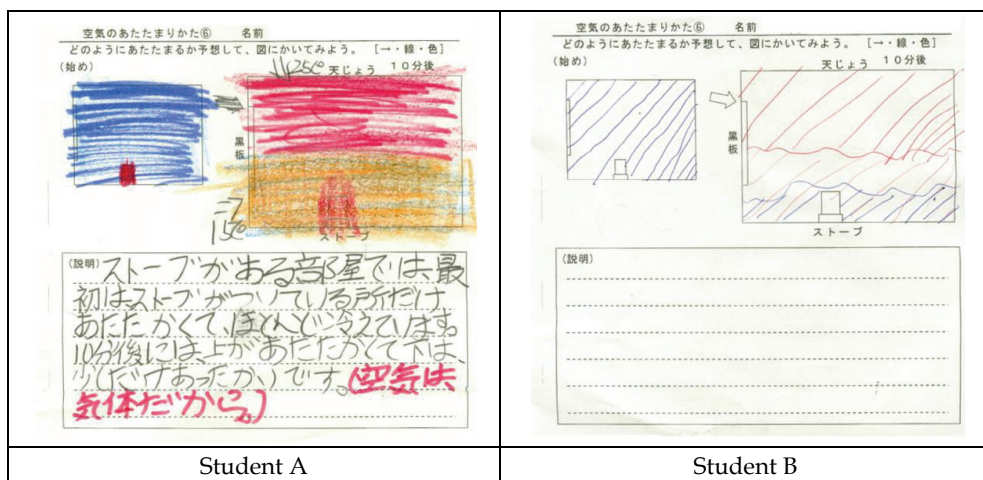 空気のあたたまりかた⑥ 名前
どのようにあたたまるか予想して、図にかいてみよう。 [→・線・色]
(始め)
25c°
天じょう 10分後
黒板
15c°
ストーブ
(説明) ストーブがある部屋では、最
初はストーブがついている所だけ
あたたかくて、ほとんど冷えています。
10分後には、上があたたかくて下は、
少しだけあったかいです。(空気は、
気体だから。)
Student A
空気のあたたまりかた⑥ 名前
どのようにあたたまるか予想して、図にかいてみよう。 [→・線・色]
(始め)
天じょう 10分後
黒板
ストーブ
(説明)
Student B